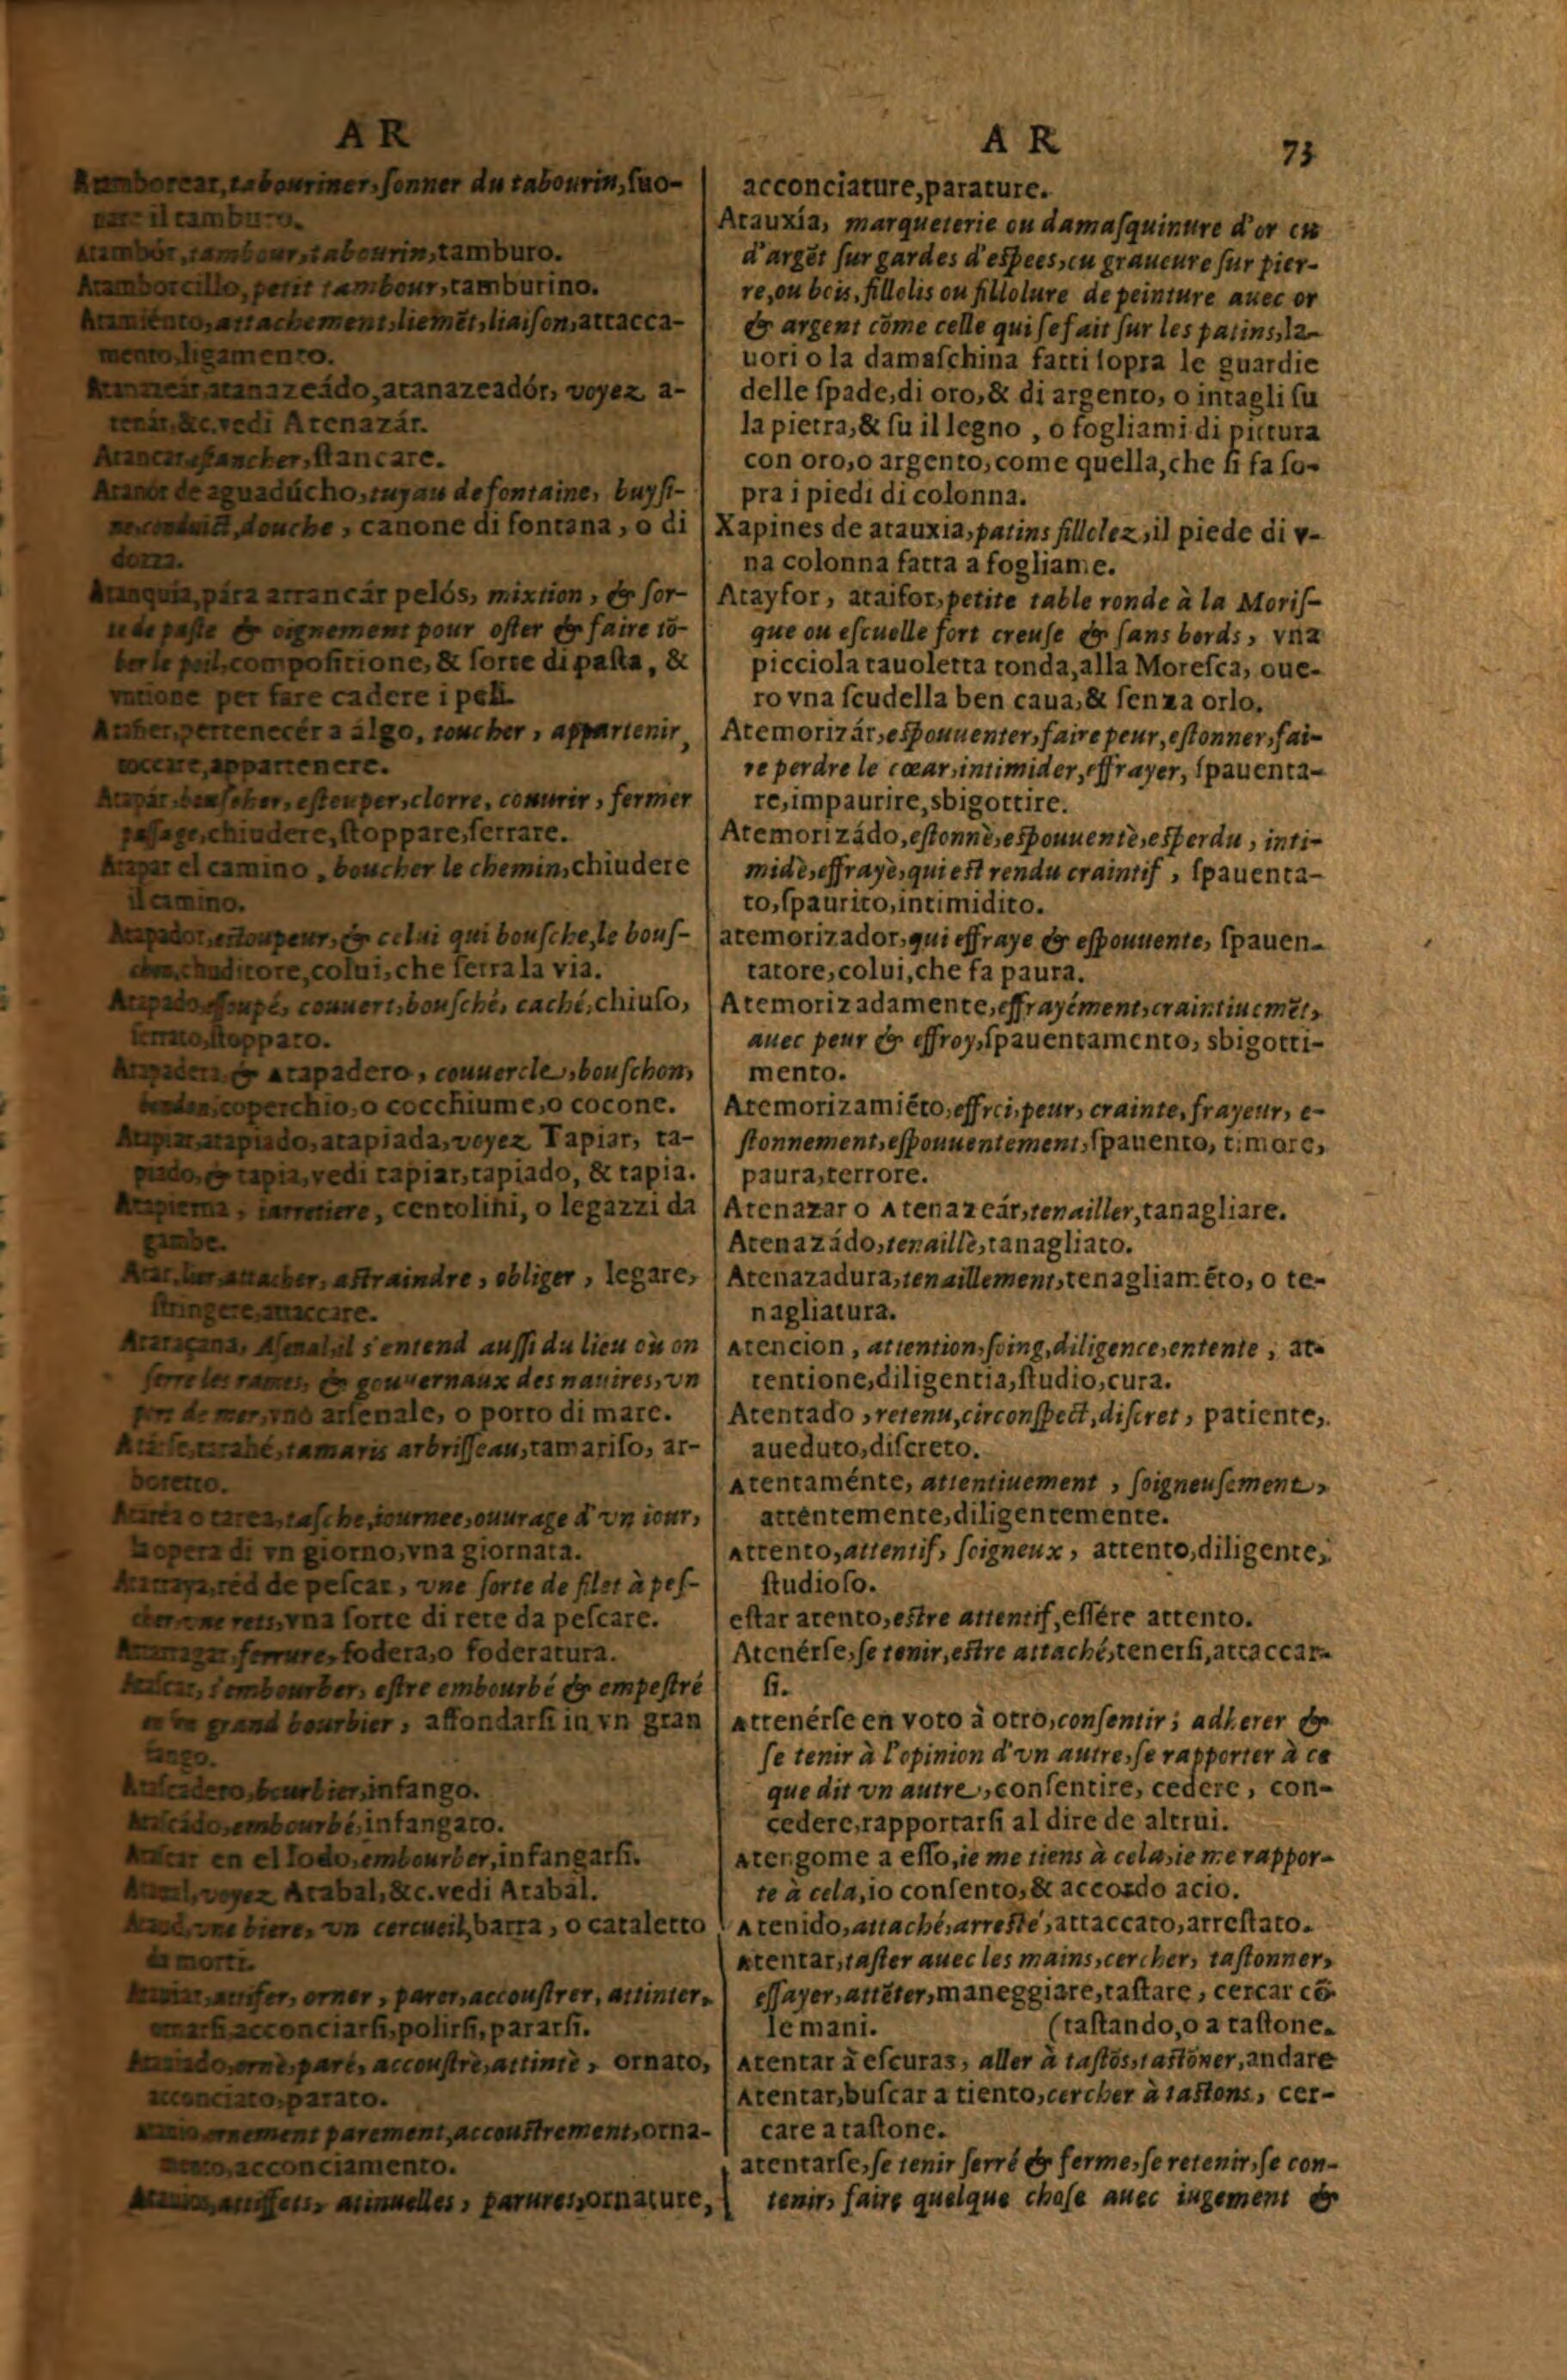 A R
Atamborear, tabouriner, ſonner du tabourin, ſuo-
nare il tamburo.
Atambór, tambour, tabourin, tamburo.
Atamborcillo, petit tambour, tamburino.
Atamiénto, attachement, liemēt, liaiſon, attacca-
mento, ligamento.
atanazeádo, atanazeadór, voyez a-
tenár, &c. vedi Atenazár.
Atancar, eſtancher, ſtancare.
Atanór de aguadúcho, tuyau de fontaine, buyſi-
ne, conduict, douche, canone di fontana, o di
dozza.
Atanquia, pára arrancár pelós, mixtion, & ſor-
te de paſte & oignement pour oſter & faire tō-
ber le poil, compoſitione, & ſorte di paſta, &
vntione per fare cadere i peli.
Atañer, pertenecér a álgo, toucher, appartenir,
toccare, appartenere.
Atapár, bouſcher, eſtouper, clorre, couurir, fermer
paſſage, chiudere, ſtoppare, ſerrare.
Atapar el camino, boucher le chemin, chiudere
il camino.
Atapador, eſtoupeur, & celui qui bouſche, le bouſ-
chon, chuditore, colui, che ſerra la via.
Atapado, eſtoupé, couuert, bouſché, caché, chiuſo,
ſerrato, ſtoppato.
Atapadera, & atapadero, couuercle, bouſchon,
bondon, coperchio, o cocchiume, o cocone.
Atapiar, atapiado, atapiada, voyez Tapiar, ta-
piado, & tapia, vedi tapiar, tapiado, & tapia.
Atapierna, iarretiere, centolini, o legazzi da
gambe.
Atar, lier, attacher, aſtraindre, obliger, legare,
ſtringere, attaccare.
Ataraçana, Aſenal, il s'entend auſſi du lieu où on
ſerre les rames, & gouuernaux des nauires, vn
port de mer, vno arſenale, o porto di mare.
tarahé, tamaris arbriſſeau, tamariſo, ar-
boretto.
Ataréa o tarea, taſche, iournee, ouurage d'vn iour,
l'opera di vn giorno, vna giornata.
Atarraya, réd de peſcar, vne ſorte de filet à peſ-
cher, vne rets, vna ſorte di rete da peſcare.
ferrure, fodera, o foderatura.
Ataſcar, s'embourber, eſtre embourbé & empeſtré
en vn grand bourbier, affondarſi in vn gran
fango.
Ataſcadero, bourbier, infango.
Ataſcádo, embourbé, infangato.
Ataſcar en el lodo, embourber, infangarſi.
voyez Atabal, &c. vedi Atabál.
Ataud, vne biere, vn cercueil, barra, o cataletto
da morti.
Atauiar, attifer, orner, parer, accouſtrer, attinter,
ornarſi, acconciarſi, polirſi, pararſi.
Atauiado, orné, paré, accouſtrè, attintè, ornato,
acconciato, parato.
Atauio, ornement parement, accouſtrement, orna-
mento, acconciamento.
Atauios, attiffets, atinuelles, parures, ornature,
A R 73
acconciature, parature.
Atauxía, marqueterie ou damaſquinure d'or ou
d'argēt ſur gardes d'eſpees, ou graueure ſur pier-
re, ou bois, fillolis ou fillolure de peinture auec or
& argent cōme celle qui ſe fait ſur les patins, la-
uori o la damaſchina fatti ſopra le guardie
delle ſpade, di oro, & di argento, o intagli ſu
la pietra, & ſu il legno, o fogliami di pittura
con oro, o argento, come quella, che ſi fa ſo-
pra i piedi di colonna.
Xapines de atauxia, patins fillolez, il piede di v-
na colonna fatta a fogliame.
Atayfor, ataifor, petite table ronde à la Moriſ-
que ou eſcuelle fort creuſe & ſans bords, vna
picciola tauoletta tonda, alla Moreſca, oue-
ro vna ſcudella ben caua, & ſenza orlo.
Atemorizár, eſpouuenter, faire peur, eſtonner, fai-
re perdre le cœur, intimider, effrayer, ſpauenta-
re, impaurire, sbigottire.
Atemorizádo, eſtonnè, eſpouuentè, eſperdu, inti-
midè, effrayè, qui eſt rendu craintif, ſpauenta-
to, ſpaurito, intimidito.
atemorizador, qui effraye & eſpouuente, ſpauen-
tatore, colui, che fa paura.
Atemorizadamente, effrayément, craintiuemēt,
auec peur & effroy, ſpauentamento, sbigotti-
mento.
Atemorizamiéto, effroi, peur, crainte, frayeur, e-
ſtonnement, eſpouuentement, ſpauento, timore,
paura, terrore.
Atenazar o Atenazeár, tenailler, tanagliare.
Atenazádo, tenaillè, tanagliato.
Atenazadura, tenaillement, tenagliamēto, o te-
nagliatura.
Atencion, attention, ſoing, diligence, entente, at-
tentione, diligentia, ſtudio, cura.
Atentado, retenu, circonſpect, diſcret, patiente,
aueduto, diſcreto.
Atentaménte, attentiuement, ſoigneuſement,
attēntemente, diligentemente.
Attento, attentif, ſoigneux, attento, diligente,
ſtudioſo.
eſtar atento, eſtre attentif, eſſére attento.
Atenérſe, ſe tenir, eſtre attaché, tenerſi, attaccar-
ſi.
Attenérſe en voto à otrò, conſentir; adherer &
ſe tenir à l'opinion d'vn autre, ſe rapporter à ce
que dit vn autre, conſentire, cedere, con-
cedere, rapportarſi al dire de altrui.
Atengome a eſſo, ie me tiens à cela, ie me rappor-
te à cela, io conſento, & accordo acio.
Atenido, attaché, arreſté, attaccato, arreſtato.
Atentar, taſter auec les mains, cercher, taſtonner,
eſſayer, attēter, maneggiare, taſtare, cercar cō
le mani. (taſtando, o a taſtone.
Atentar à eſcuras, aller à taſtōs, taſtōner, andare
Atentar, buſcar a tiento, cercher à taſtons, cer-
care a taſtone.
atentarſe, ſe tenir ſerré & ferme, ſe retenir, ſe con-
tenir, faire quelque choſe auec iugement &